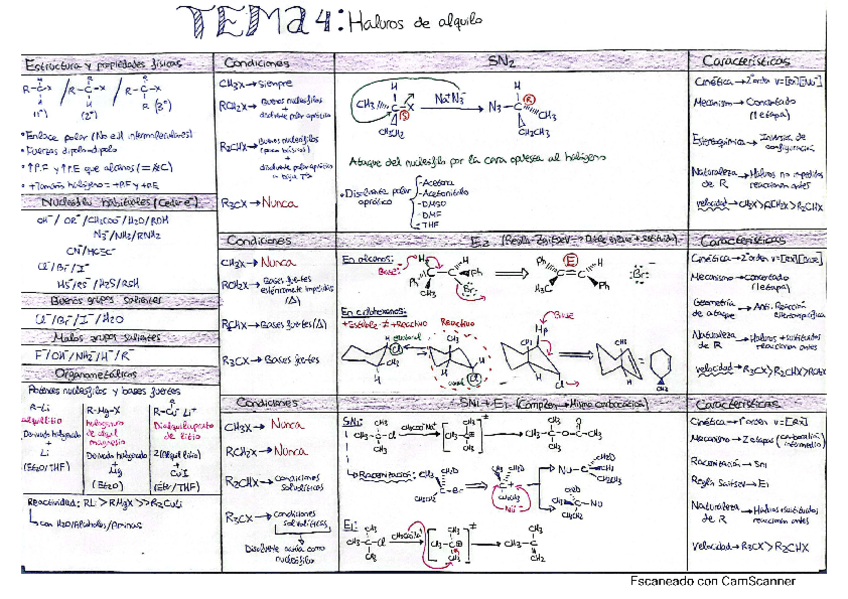 TEMA 4: Haluros de alquilo
Estructura y propiedades físicas
(1°) (2°) R (3°)
• Enlace polar (No est intermoleculares)
• Fuerzas dipolo-dipolo
• ↑P.F y ↑P.E que alcanos (= a C)
• + Tamaño halógeno = +P.F y +P.E
Nucleófilos habituales (Ceder e⁻)
OH⁻/ OR⁻/ CH3COO⁻/ H2O/ ROH
N3⁻/ NH3/ RNH2
CN⁻/ HC≡C⁻
Cl⁻/ Br⁻/ I⁻
HS⁻/ RS⁻/ H2S/ RSH
Buenos grupos salientes
Cl⁻/ Br⁻/ I⁻/ H2O
Malos grupos salientes
F⁻/ OH⁻/ NH2⁻/ H⁻/ R⁻
Organometálicos
Potentes nucleófilos y bases fuertes
R-Li
alquillitio
Derivado halogenado
+
Li
(Et2O/THF)
R-Mg-X
haluro de alquil magnesio
Derivado halogenado
+
Mg
(Et2O)
R-Cu⁻ Li⁺
Dialquilcuprato de litio
2(Alquil litio)
+
CuI
(Et2O/THF)
Reactividad: RLi > RMgX >> R2CuLi
con H2O/Alcoholes/Aminas
Condiciones
CH3X → Siempre
RCH2X → Buenos nucleófilos
+
disolvente polar aprótico
R2CHX → Buenos nucleófilos
(poco básicos)
+
disolvente polar aprótico
R3CX → Nunca
SN2
CH3 C X Na⁺N3⁻ N3 - C
CH2CH3
Ataque del nucleófilo por la cara opuesta al halógeno
• Disolvente polar aprótico
- Acetona
- Acetonitrilo
- DMSO
- DMF
- THF
Características
Cinética → 2º orden
Mecanismo → Concertado
(1 etapa)
Estereoquímica → Inversa de configuración
Naturaleza de R → Haluros no impedidos reaccionan antes
velocidad → CH3X > RCH2X > R2CHX
Condiciones
CH3X → Nunca
RCH2X → Bases fuertes
estéricamente impedidas
(Δ)
R2CHX → Bases fuertes (Δ)
R3CX → Bases fuertes
E2 (Regla Zaitsev → Doble enlace + sustituido)
En alcanos:
Base:⁻
Ph
CH3
Br
(E)
H3C
:Br:⁻
En ciclohexanos:
+ Estable ≠ + Reactivo
Reactivo
CH3
Cl
Base
Características
Cinética → 2º orden
Mecanismo → Concertado
(1 etapa)
Geometría de ataque → Anti. Reacción estereoespecífica
Naturaleza de R → Haluros + sustituidos reaccionan antes
velocidad → R3CX > R2CHX > RCH2X
Condiciones
CH3X → Nunca
RCH2X → Nunca
R2CHX → Condiciones solvolíticas
R3CX → Condiciones solvolíticas
Disolvente actúa como nucleófilo
SN1 + E1 (Compiten → Mismo carbocatión)
SN1:
Racemización:
E1:
Características
Cinética → 1º orden
Mecanismo → 2 etapas (carbocatión intermedio)
Racemización → SN1
Regla Saitsev → E1
Naturaleza de R → Haluros + sustituidos reaccionan antes
Velocidad → R3CX > R2CHX
Escaneado con CamScanner